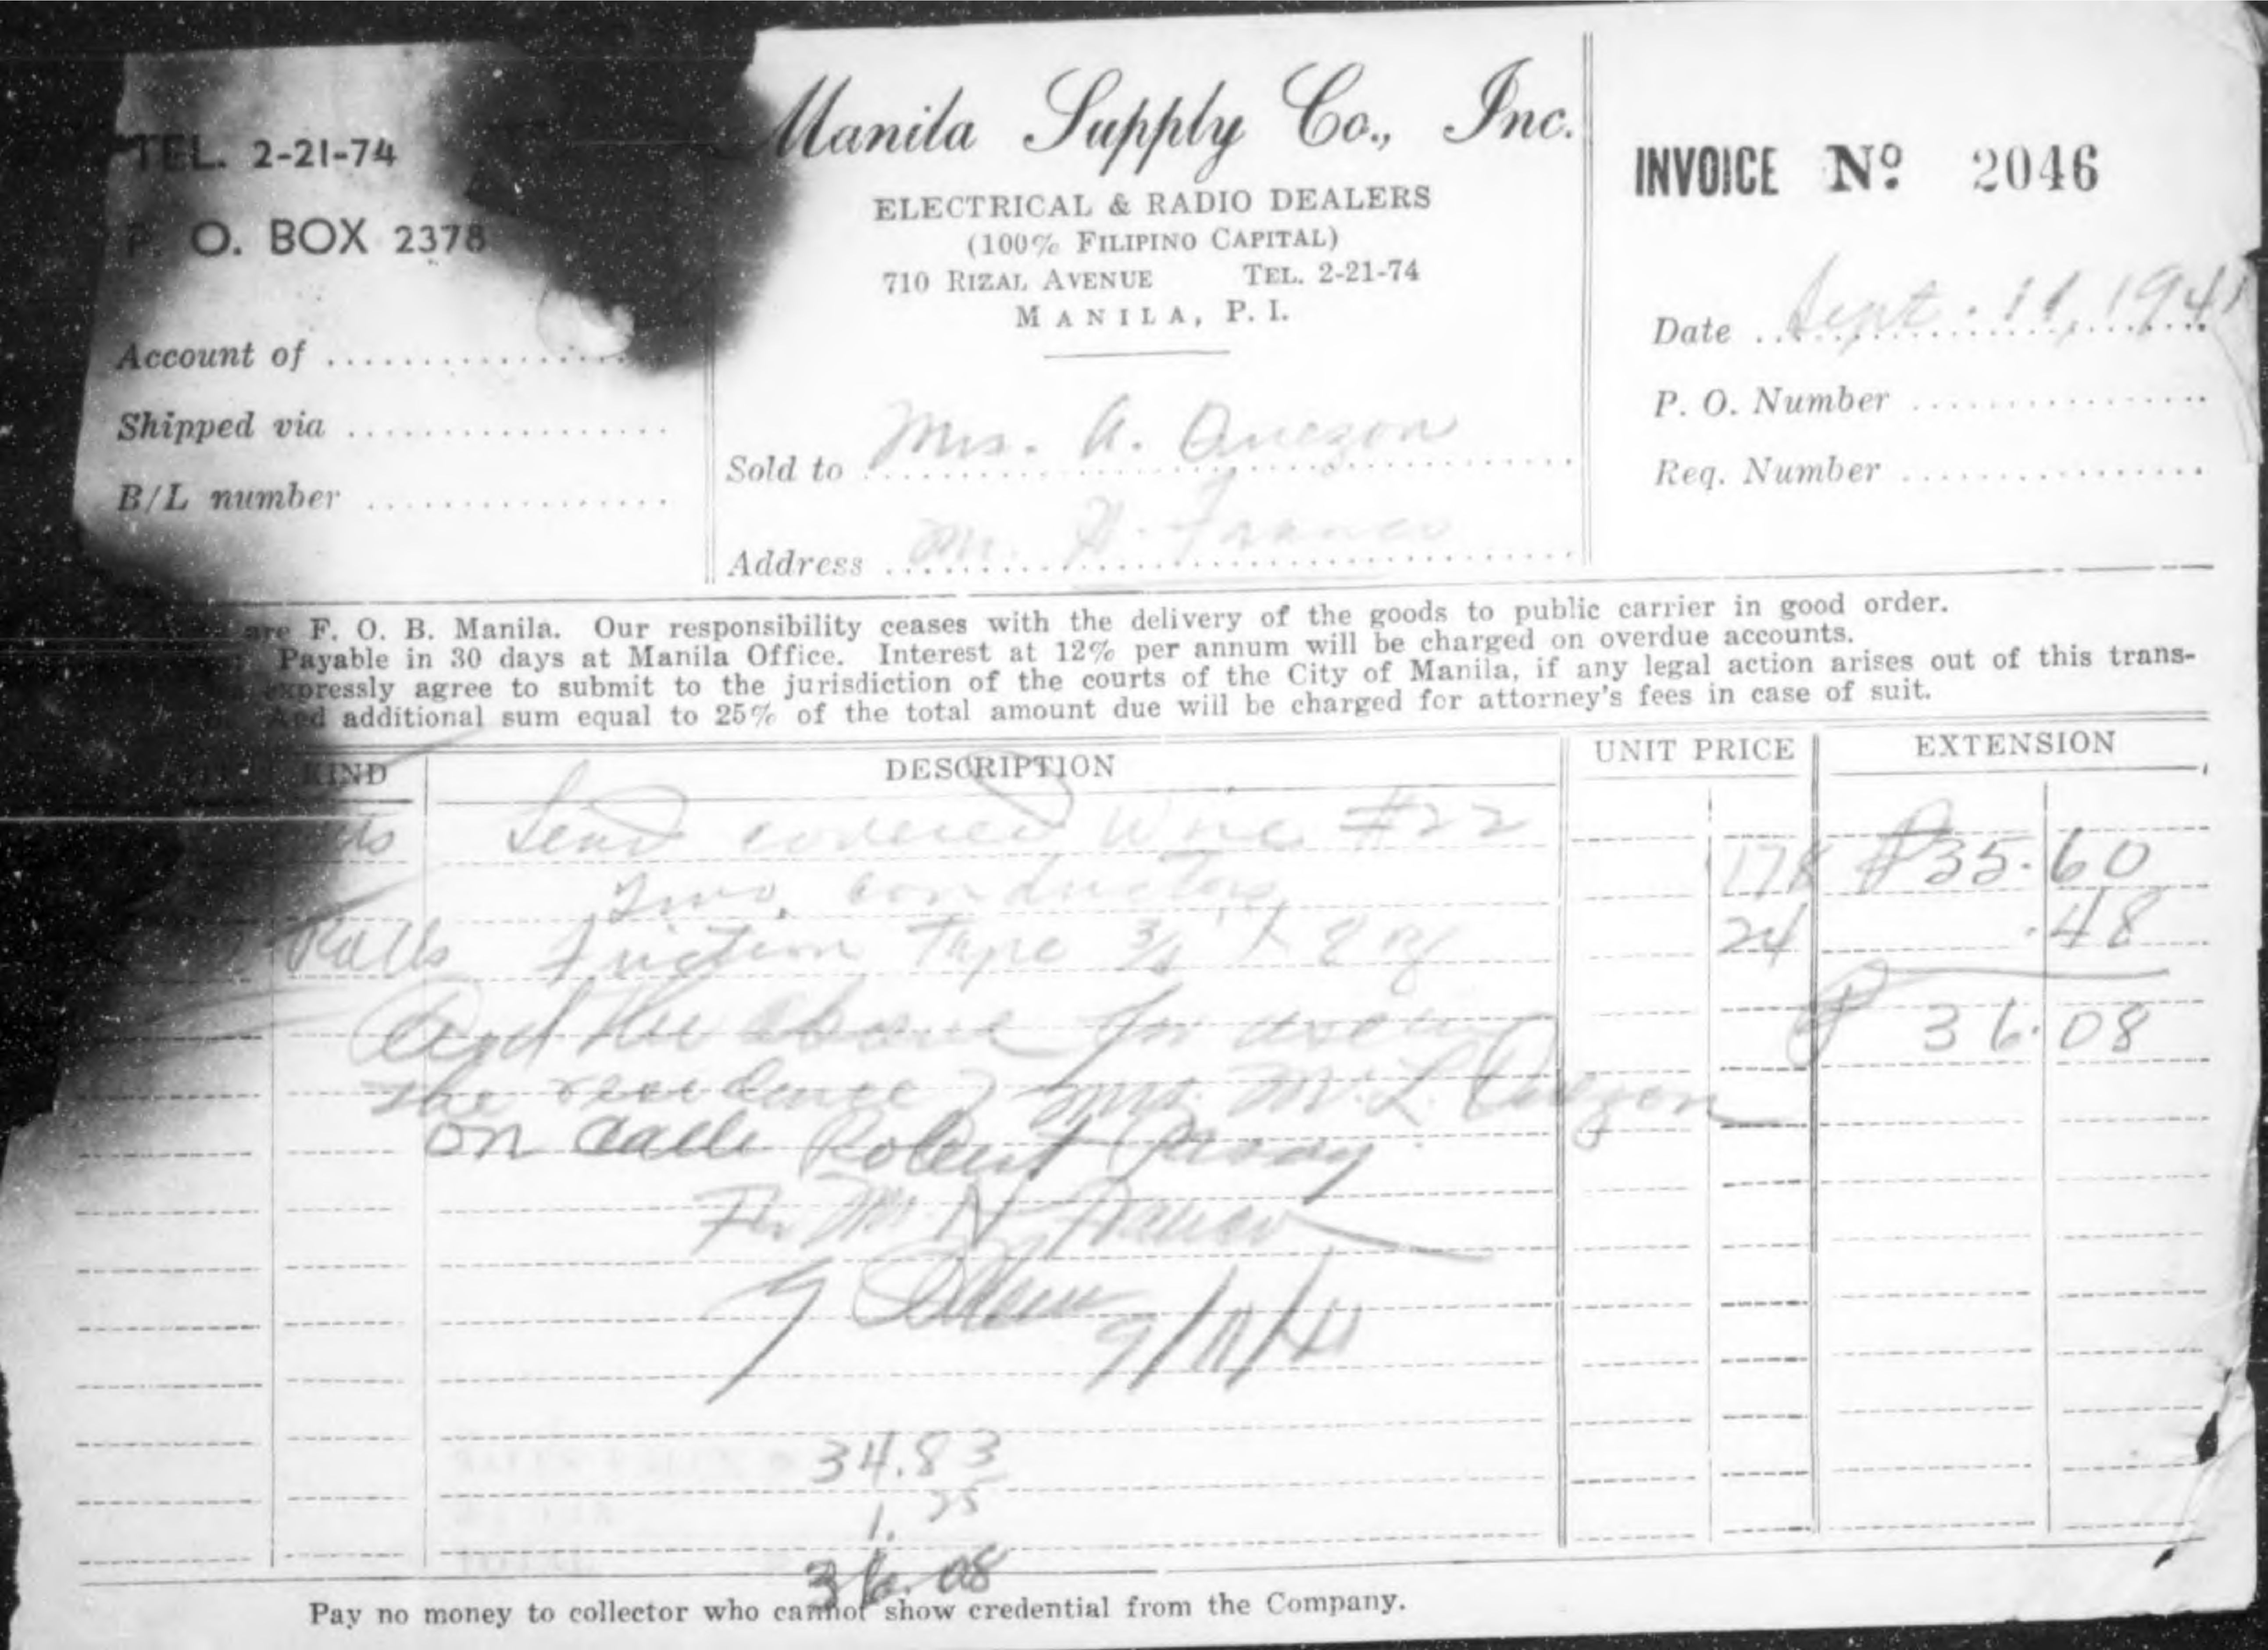 TEL. 2-21-74
P. O. BOX 2378
Account of
Shipped via
B/L number
Manila Supply Co., Inc.
ELECTRICAL & RADIO DEALERS
(100% FILIPINO CAPITAL)
710 RIZAL AVENUE TEL. 2-21-74
MANILA, P. I.
Sold to Mrs. A. Quezon
Address Mr. N. Franco
INVOICE Nº 2046
Date Sept. 11, 1941
P. O. Number
Req. Number
are F. O. B. Manila. Our responsibility ceases with the delivery of the goods to public carrier in good order.
Payable in 30 days at Manila Office. Interest at 12% per annum will be charged on overdue accounts.
expressly agree to submit to the jurisdiction of the courts of the City of Manila, if any legal action arises out of this trans-
And additional sum equal to 25% of the total amount due will be charged for attorney's fees in case of suit.
KIND DESCRIPTION UNIT PRICE EXTENSION
Lead covered Wire #22
two conductors 178 ₱35.60
Rolls Friction Tape 3/4" X 8 oz 24 .48
the above for use in ₱ 36.08
the residence of Mrs. M. L. Quezon
on Calle Robert
For Mr. N. Franco
9/11/41
34.83
1.25
36.08
Pay no money to collector who cannot show credential from the Company.